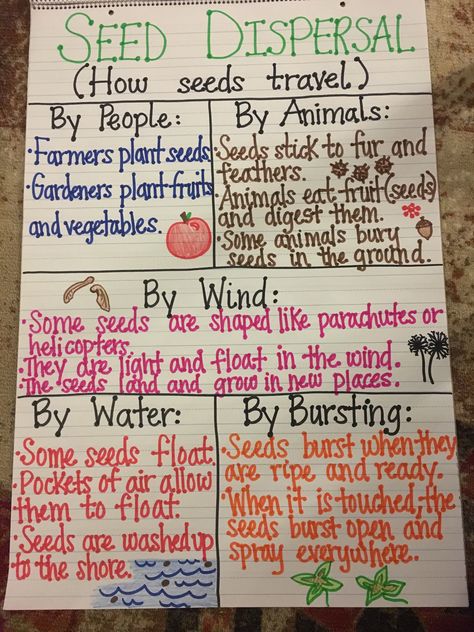 SEED DISPERSAL
(How seeds travel)
By People:
·Farmers plant seeds
·Gardeners plant fruits
and vegetables.
By Animals:
·Seeds stick to fur and
feathers.
·Animals eat fruit (seeds)
and digest them.
·Some animals bury
seeds in the ground.
By Wind:
·Some seeds are shaped like parachutes or
helicopters.
·They are light and float in the wind.
·The seeds land and grow in new places.
By Water:
·Some seeds float.
·Pockets of air allow
them to float.
·Seeds are washed up
to the shore.
By Bursting:
·Seeds burst when they
are ripe and ready.
·When it is touched, the
seeds burst open and
spray everywhere.